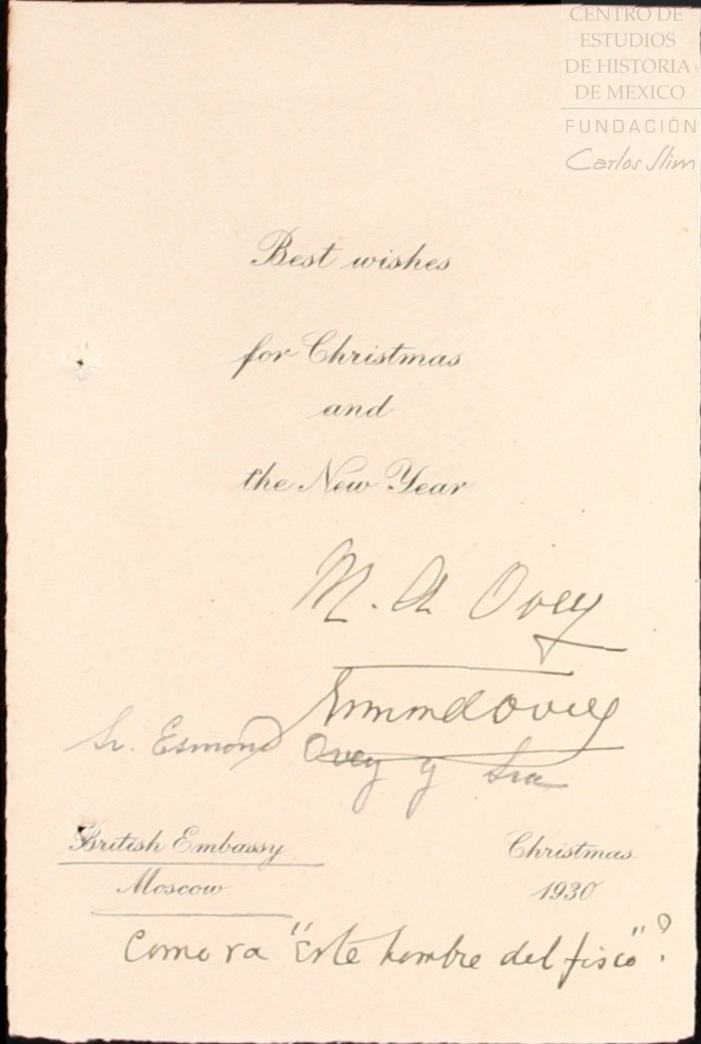 CENTRO DE
ESTUDIOS
DE HISTORIA
DE MEXICO
FUNDACIÓN
Carlos Slim
Best wishes
for Christmas
and
the New Year
M. A Ovey
Esmond Ovey
Sr. Esmond Ovey y Sra
British Embassy
Moscow
Christmas
1930
Como va "Este hombre del fisco"?